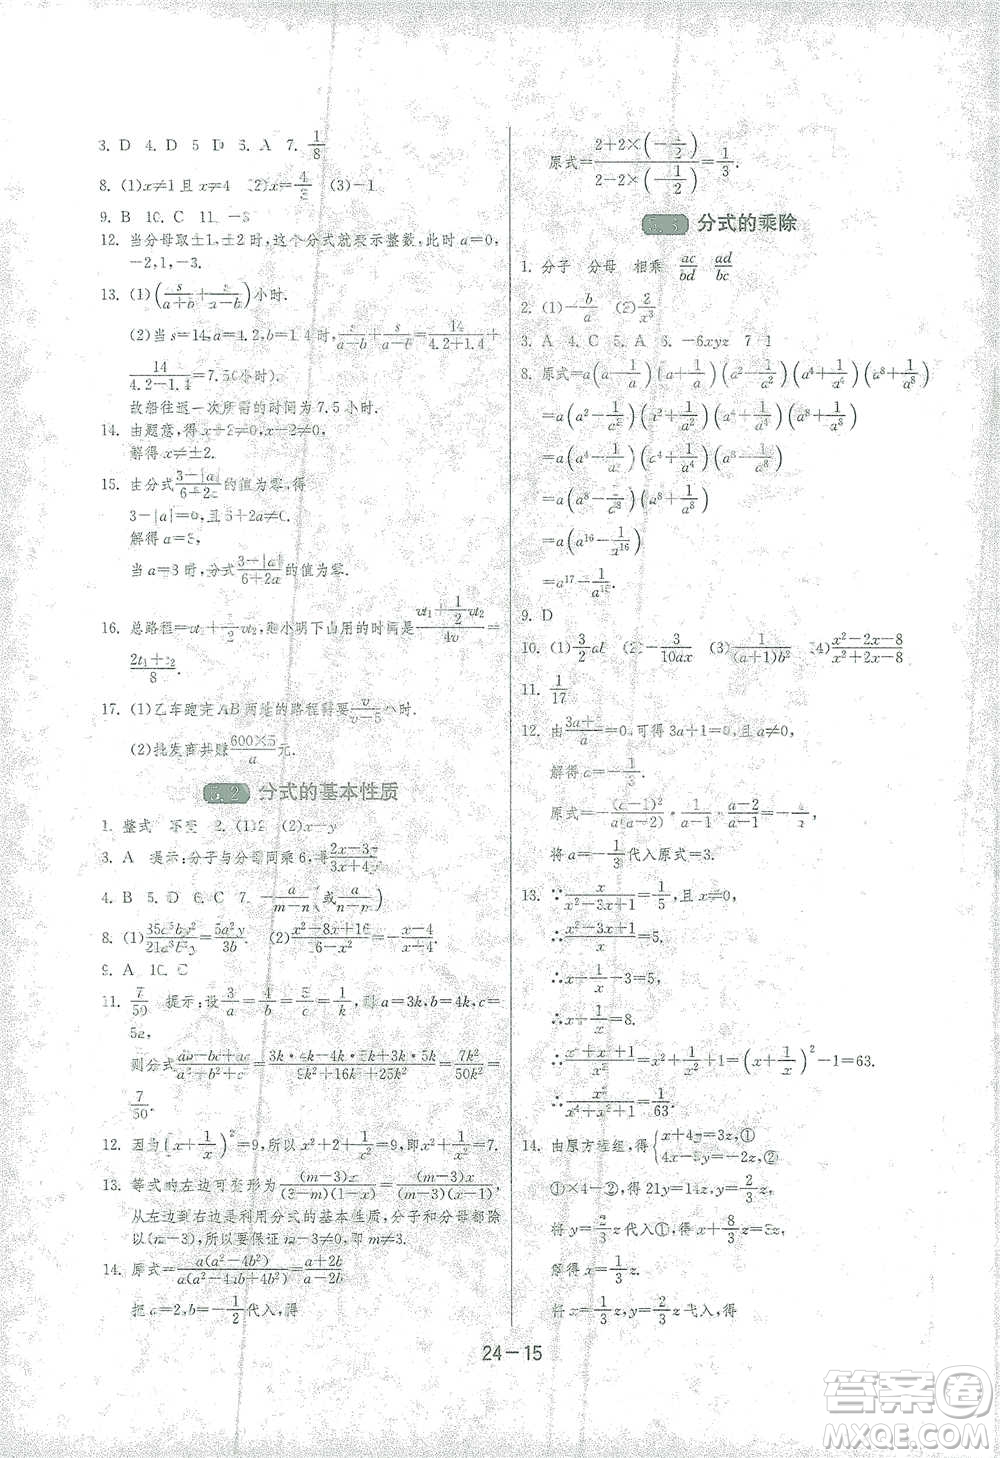 3. D 4. D 5. D 6. A 7. 1/8
8. (1)x≠1且x≠4 (2)x=4/3 (3)-1
9. B 10. C 11. -3
12. 当分母取±1,±2时,这个分式就表示整数,此时a=0,
-2,1,-3.
13. (1)(s/(a+b)+s/(a-b))小时.
(2)当s=14,a=4.2,b=1.4时,s/(a-b)+s/(a+b)=14/(4.2+1.4)+
14/(4.2-1.4)=7.5(小时).
故船往返一次所需的时间为7.5小时.
14. 由题意,得x+2≠0,x-2≠0.
解得x≠±2.
15. 由分式(3-|a|)/(6+2a)的值为零,得
3-|a|=0,且6+2a≠0.
解得a=3,
当a=3时,分式(3-|a|)/(6+2a)的值为零.
16. 总路程=vt₁+1/2vt₂,则小明下山用的时间是(vt₁+1/2vt₂)/4v=
(2t₁+t₂)/8.
17. (1)乙车跑完AB两地的路程需要v/(v-5)小时.
(2)批发商共赚(600×5)/a元.
5.2 分式的基本性质
1. 整式 不变 2. (1)2 (2)x-y
3. A 提示:分子与分母同乘6,得(2x-3y)/(3x+4y).
4. B 5. D 6. C 7. -a/(m-n)(或a/(n-m))
8. (1)35a⁵by²/21a³b²y=5a²y/3b (2)(x²-8x+16)/(16-x²)=-(x-4)/(x+4)
9. A 10. C
11. 7/50 提示:设3/a=4/b=5/c=1/k,则a=3k,b=4k,c=
5k,
则分式(ab-bc+ac)/(a²+b²+c²)=(3k·4k-4k·5k+3k·5k)/(9k²+16k²+25k²)=7k²/50k²=
7/50.
12. 因为(x+1/x)²=9,所以x²+2+1/x²=9,即x²+1/x²=7.
13. 等式的左边可变形为(m-3)x/(3-m)(1-x)=(m-3)x/(m-3)(x-1),
从左边到右边是利用分式的基本性质,分子和分母都除
以(m-3),所以要保证m-3≠0,即m≠3.
14. 原式=a(a²-4b²)/a(a²-4ab+4b²)=(a+2b)/(a-2b).
把a=2,b=-1/2代入,得
原式=(2+2×(-1/2))/(2-2×(-1/2))=1/3.
5.3 分式的乘除
1. 分子 分母 相乘 ac/bd ad/bc
2. (1)-b/a (2)2/x³
3. A 4. C 5. A 6. -6xyz 7. 1
8. 原式=a(a-1/a)(a+1/a)(a²+1/a²)(a⁴+1/a⁴)(a⁸+1/a⁸)
=a(a²-1/a²)(a²+1/a²)(a⁴+1/a⁴)(a⁸+1/a⁸)
=a(a⁴-1/a⁴)(a⁴+1/a⁴)(a⁸+1/a⁸)
=a(a⁸-1/a⁸)(a⁸+1/a⁸)
=a(a¹⁶-1/a¹⁶)
=a¹⁷-1/a¹⁵.
9. D
10. (1)3/2ab (2)-3/10ax (3)1/(a+1)b² (4)(x²-2x-8)/(x²+2x-8)
11. 1/17
12. 由(3a+1)/a=0,可得3a+1=0且a≠0.
解得a=-1/3.
原式=(a-1)²/a(a-2)·a/(a-1)·(a-2)/(a-1)
将a=-1/3代入原式=3.
13. ∵x/(x²-3x+1)=1/5,且x≠0,
∴(x²-3x+1)/x=5.
∴x+1/x-3=5,
∴x+1/x=8.
∴(x⁴+x²+1)/x²=x²+1/x²+1=(x+1/x)²-1=63.
∴x²/(x⁴+x²+1)=1/63.
14. 由原方程组,得{x+4y=3z,① 4x-5y=-2z,②
①×4-②,得21y=14z,y=2/3z,
将y=2/3z代入①,得x+8/3z=3z,
解得x=1/3z.
将x=1/3z,y=2/3z代入,得
24-15
答案卷